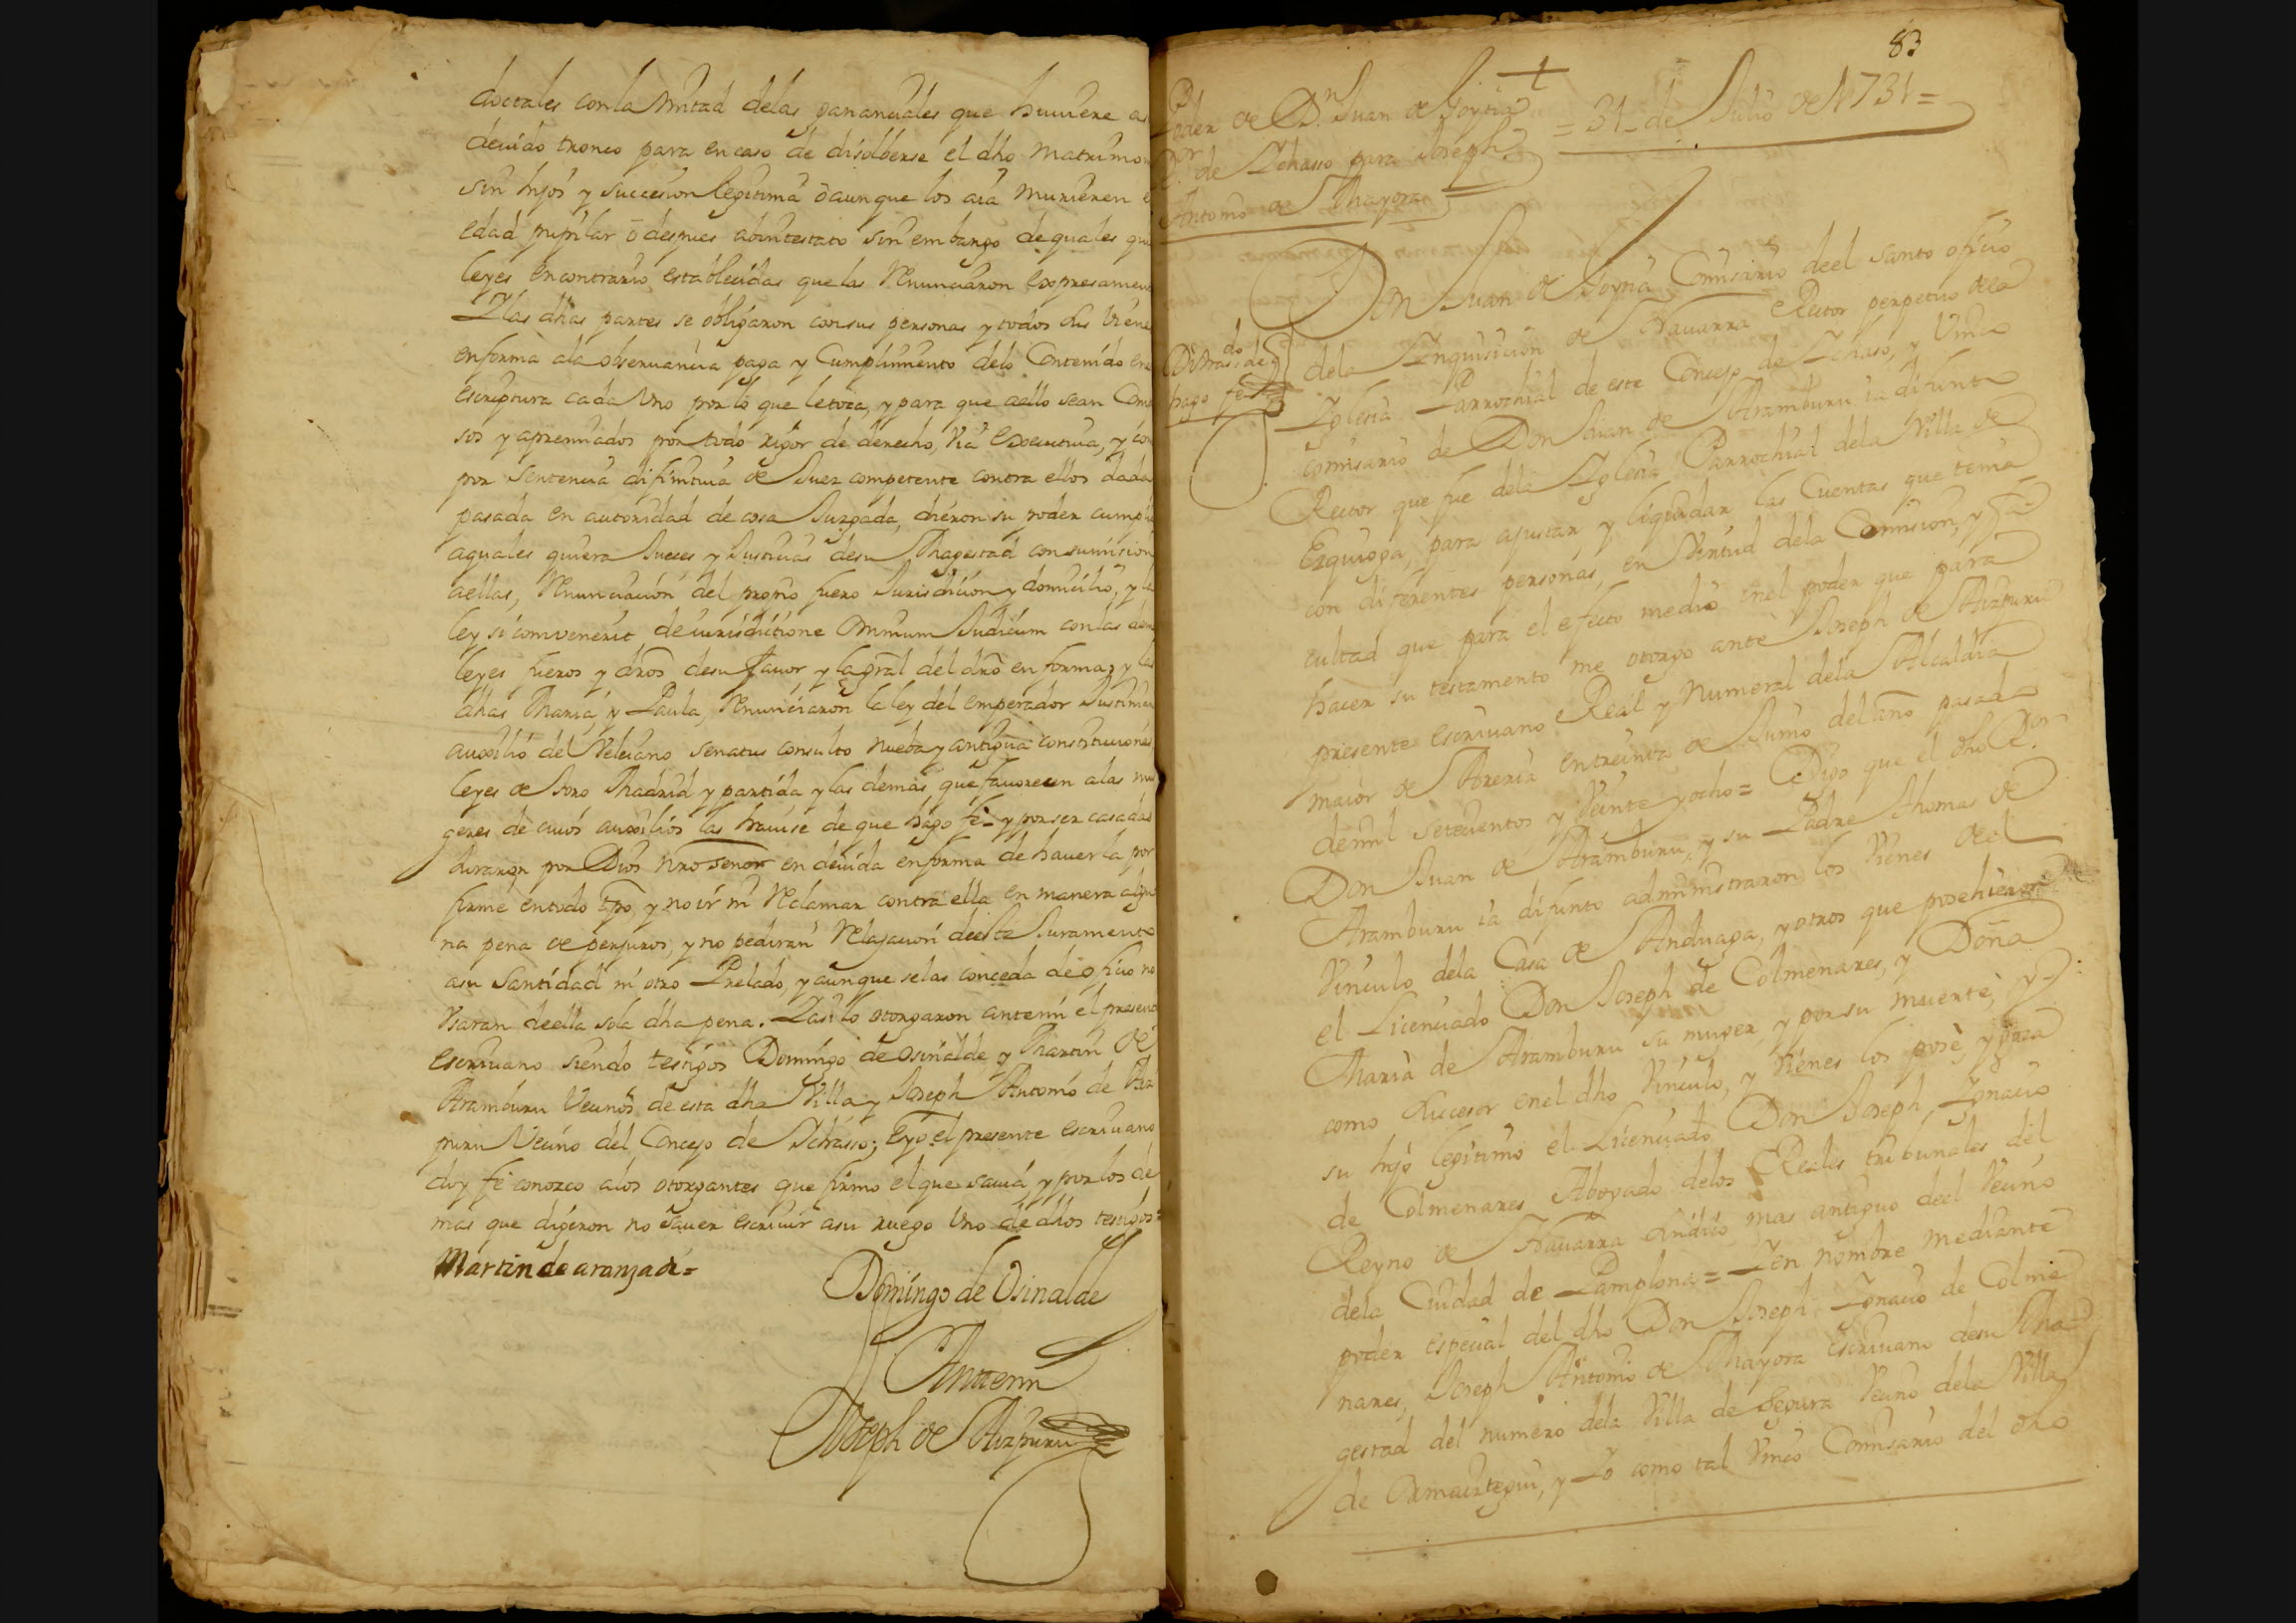 doctales con la mitad delas gananciales que huuiere a
deuido tronco para en caso de disolberse el dho matrimo
sin hijos y succesion legitima ò aunque los aia murieren e
edad pupilar ò despues abintestato sin embargo de quales qui
leyes en contrario establecidas que las renunciaron expresamen
Y las dhas partes se obligaron con sus personas y todos sus viene
en forma ala obseruancia paga y cumplimiento delo contenido en
escriptura cada vno por lo que le toca, y para que aello sean com
sos y apremiados por todo rigor de derecho, via executiua, y co
por sentencia difinitiua de Juez competente contra ellos dada
pasada en autoridad de cosa Juzgada, dieron su poder cumpli
a quales quiera Jueces y Justicias desu Magestad con sumision
aellas, renunciacion del propio fuero Jurisdicion y domicilio, y la
ley si convenerit de iurisdictione omnium Judicum con las dem
leyes fueros y dros desu fauor y la gral del dro en forma; y las
dhas Maria, y Paula, renunciaron la ley del emperador Justinia
auxilio del Veleiano senatus consulto nueba y antigua constituciones
leyes de Toro Madrid y partida y las demas que fauorecen alas mu
geres de cuios auxilios las hauise de que hago fe y por ser casadas
Juraron por Dios nro señor en deuida en forma de hauer la por
firme en todo tpo, y no ir ni reclamar contra ella en manera algu
na pena de perjuros, y no pediran relajacion deeste Juramento
asu Santidad ni otro Prelado, y aunque selas conceda de oficio no
vsaran deella sola dha pena. Y asi lo otorgaron antemi el presente
escriuano siendo testigos Domingo de Osinalde y Martin de
Aramburu vecinos de esta dha Villa y Joseph Antonio de Aiz
puru vecino del Concejo de Ichasso; E yo el presente escriuano
doy fe conozco alos otorgantes que firmo el que sauia, y por los de
mas que digeron no sauer escriuir asu ruego vno de dhos testigos=
Martin de aranzadi=
Domingo de Osinalde
Antemi
Joseph de Aizpuru
83
Poder de Dn. Juan de Goytia
Ror. de Ichasso para Joseph
Antonio de Mayora =
= 31 de Julio de 1731 =
Di tras.do de el
hago fe
Don Juan de Goytia Comisario deel santo oficio
dela Inquisicion de Nauarra Rector perpetuo dela
Iglesia Parrochial de este Concejo de Ichaso, y vnico
comisario de Don Juan de Aramburu ia difunto
Rector que fue dela Iglesia Parrochial dela Villa de
Ezquioga, para ajustar y liquidar las Cuentas que tenia
con diferentes personas, en virtud dela Comision, y fa-
cultad que para el efecto me dio enel poder que para
hacer su testamento me otorgo ante Joseph de Aizpuru
presente escriuano Real y Numeral dela Alcaldia
maior de Areria en treinta de Junio del año pasado
demil setecientos y veinte y ocho = Digo que el dho Ror.
Don Juan de Aramburu, y su Padre Thomas de
Aramburu ia difunto administraron los vienes deel
vinculo dela Casa de Anduaga, y otros que posehieron
el Licenciado Don Joseph de Colmenares, y Doña
Maria de Aramburu su muger, y por su muerte, y
como sucesor enel dho vinculo, y vienes los posè, y goza
su hijo legitimo el Licenciado Don Joseph Ignacio
de Colmenares Abogado delos Reales tribunales del
Reyno de Nauarra sindico mas antiguo deel vecino
dela Ciudad de Pamplona = Y en nombre mediante
poder especial del dho Don Joseph Ignacio de Colme
nares, Joseph Antonio de Mayora Escriuano desu Ma
gestad del numero dela Villa de Segura vecino dela Villa
de Ormaiztegui, y Yo como tal vnico Comisario del dho